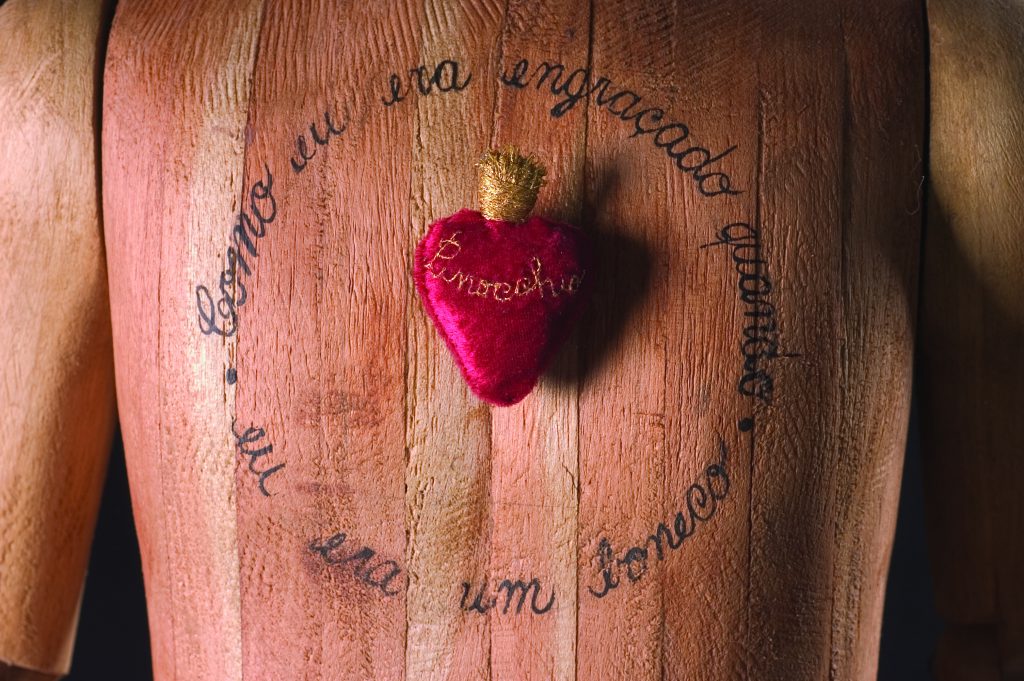 Como eu era engraçado quando
eu era um boneco
Pinocchio